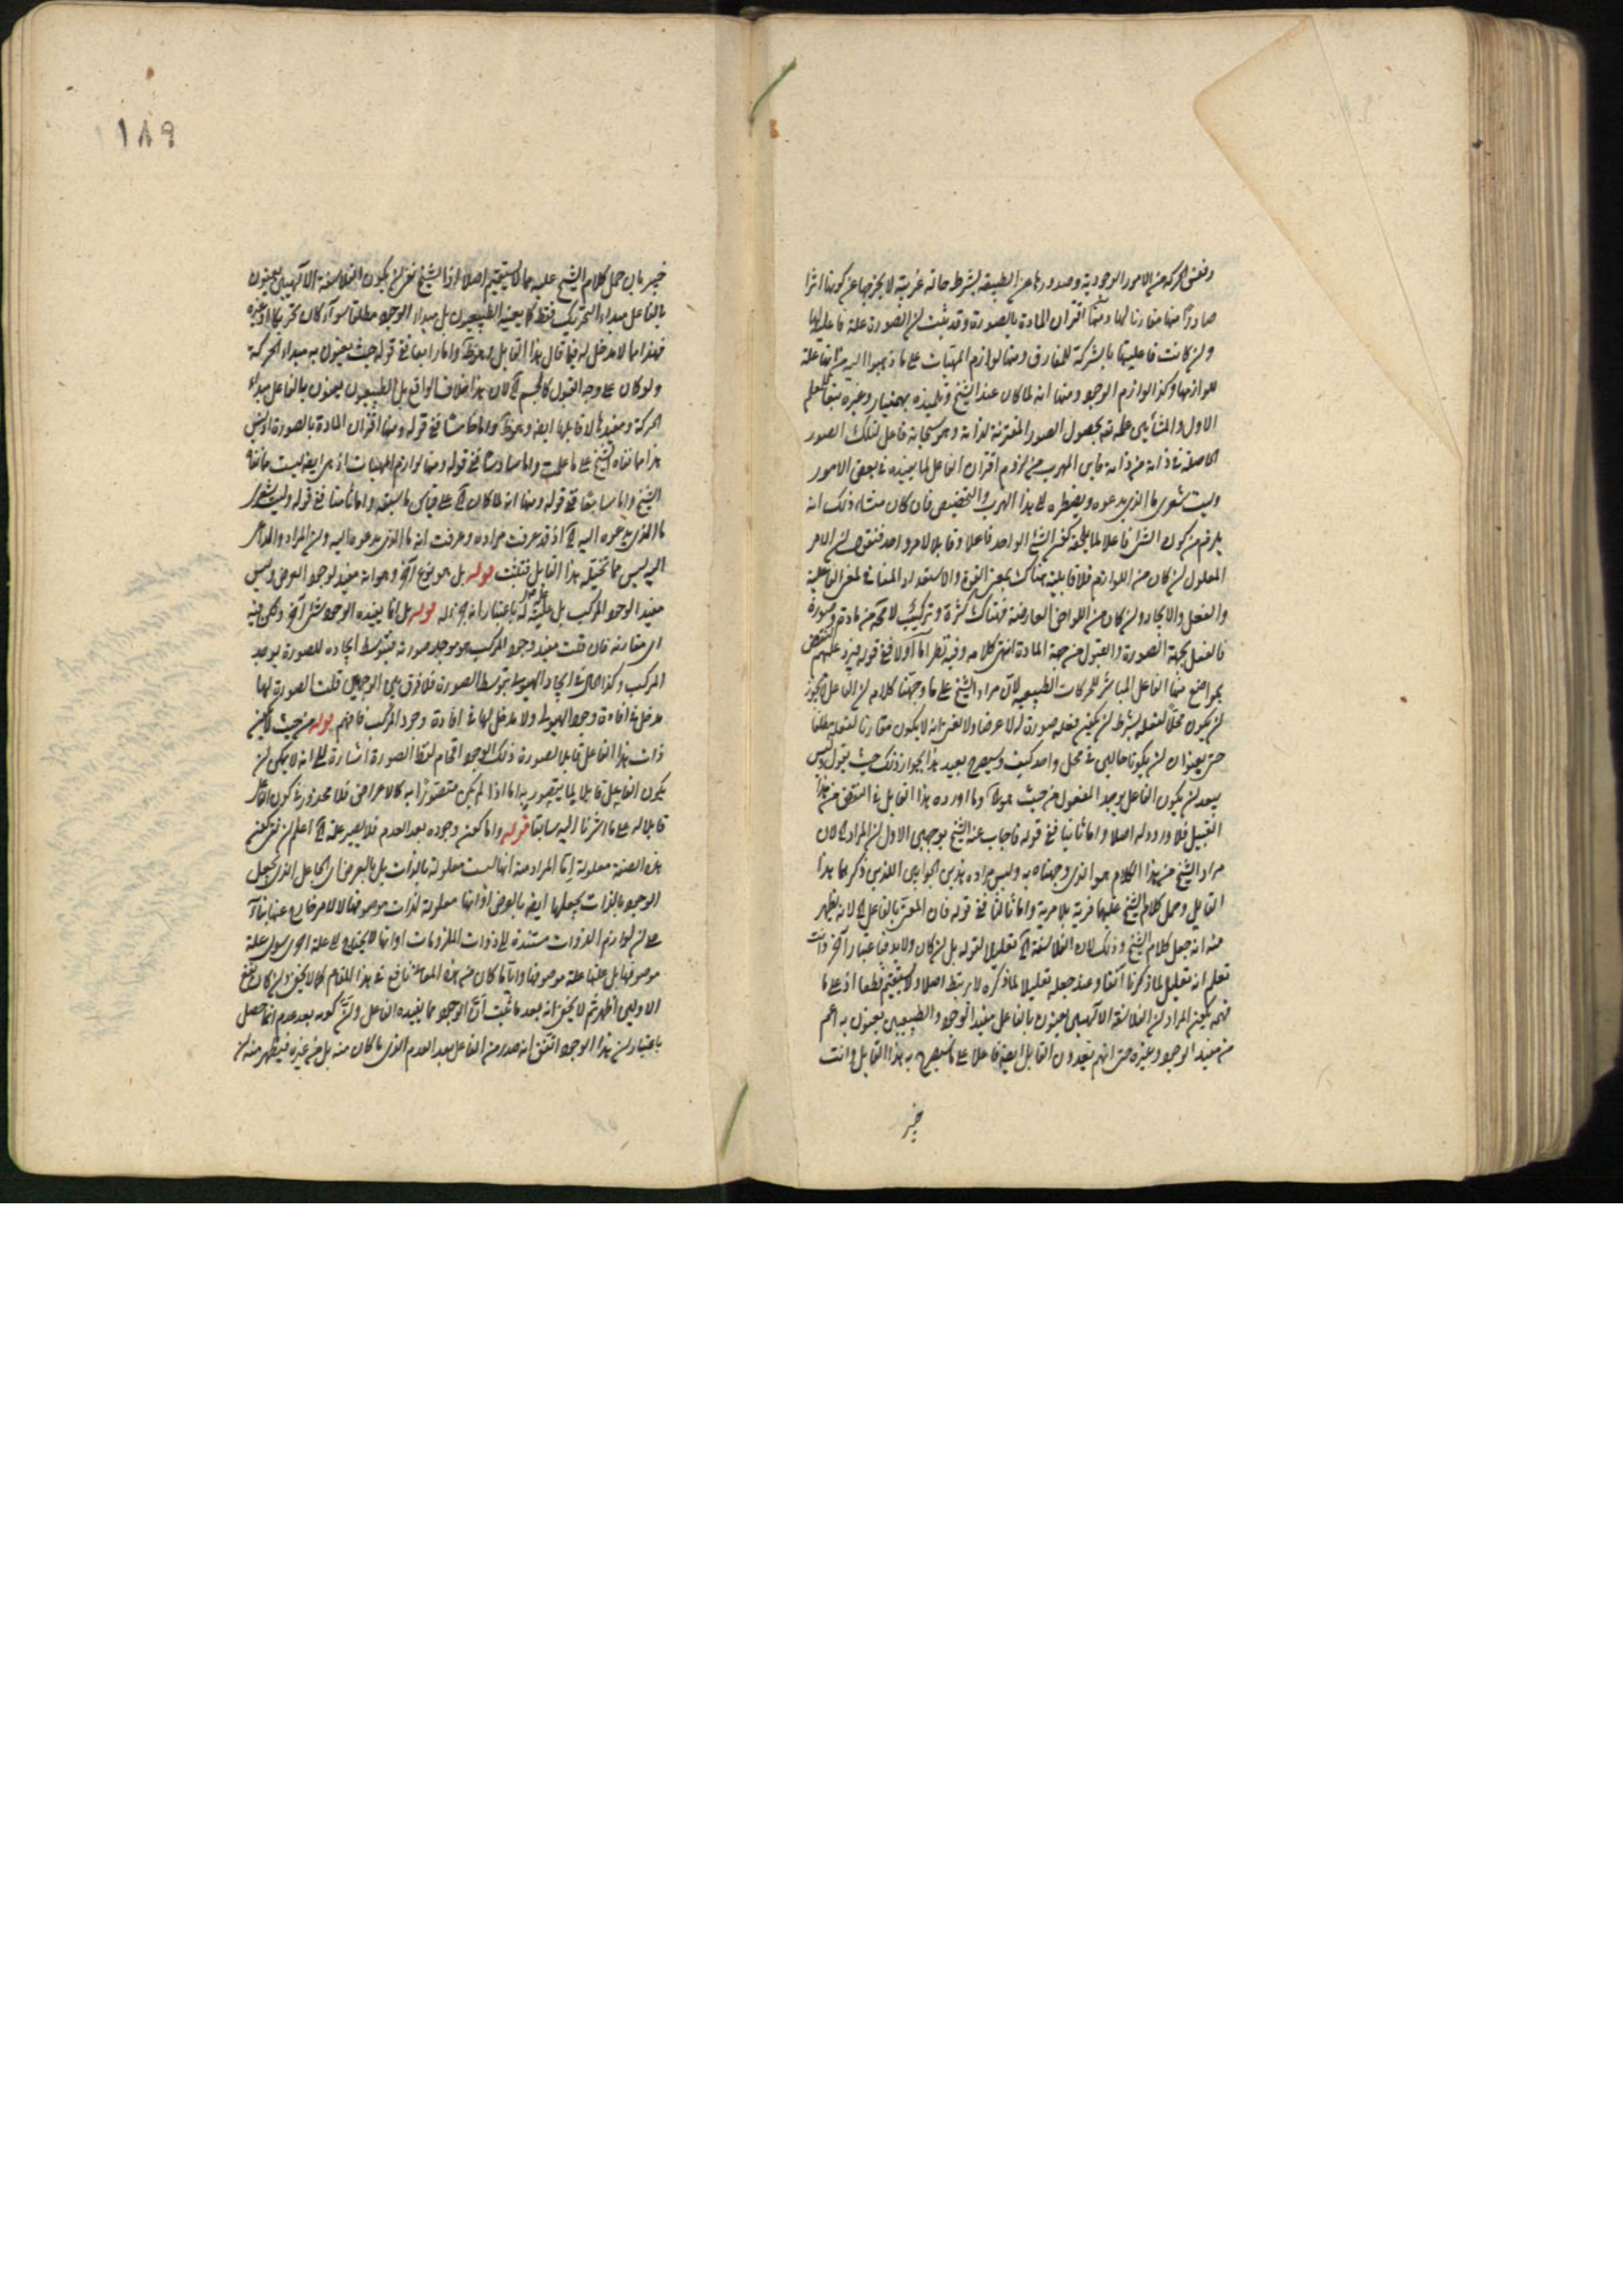 ونفس الحركة من الامور الوجودية وصدورها من الطبيعة بشرط حالة غريبة لا يخرجها عن كونها اثرا
صادرا منها مقارنا لها ومنها اقتران المادة بالصورة وقد ثبت ان الصورة علة فاعلية لها
وان كانت فاعليتها بالشركة للمفارق ومنها لوازم المهيات على ما ذهبوا اليه من انها علة
للوازمها وكذا لوازم الوجود ومنها انه لما كان عند الشيخ وتلميذه بهمنيار وغيره تبعا للمعلم
الاول والمشائين علمه تعالى بحصول الصور المقترنة لذاته وهو سبحانه فاعل لتلك الصور
الحاصلة في ذاته من ذاته فاين المهرب من لزوم اقتران الفاعل لما يفيده في بعض الامور
وليت شعري ما الذي يدعوه ويضطره الى هذا الهرب والتخصيص فان كان منشأ ذلك انه
يلزم من كون الشئ فاعلا لما يلحقه كون الشئ الواحد فاعلا وقابلا لامر واحد فنقول ان الامر
المعلول ان كان من اللوازم فلا قابلية هناك بمعنى القوة والاستعداد المنافي لمعنى الفاعلية
والفعل والايجاد وان كان من العوارض العارضة فهناك كثرة وتركيب لا محة من مادة وصورة
فالفعل بجهة الصورة والقبول من جهة المادة انتهى كلامه وفيه نظر اما اولا ففي قوله فيرد عليهم النقض
بمواضع منها الفاعل المباشر للحركات الطبيعية لان مراد الشيخ على ما وجهنا كلامه ان الفاعل يجوز
ان يكون محلا لفعله بشرط ان يكون فعله صورة له لا عرضا ولا يعنى انه لا يكون مقارنا لفعله مطلقا
حتى يعنون ان يكونا حالين في محل واحد كيف وسيصرح بعيد هذا بجواز ذلك حيث يقول وليس
يبعد ان يكون الفاعل يوجد المفعول من حيث هو وما اورده هذا القابل في النقض من هذا
القبيل فلا ورود له اصلا واما ثانيا ففي قوله فاجاب عنه الشيخ بوجهين الاول ان المراد لان
مراد الشيخ من هذا الكلام هو الذي وجهناه به وليس مراده هذين الجوابين اللذين ذكرهما هذا
القايل وحمل كلام الشيخ عليهما فرية بلا مرية واما ثالثا ففي قوله فان المعنى بالفاعل لانه يظهر
منه انه جعل كلام الشيخ وذلك لان الفلاسفة تعليلا لقوله بل ان كان ولا بد فباعتبار آخر وانت
تعلم انه تعليل لما ذكرنا آنفا وعند جعله تعليلا لما ذكره لا يرتبط اصلا ولا يستقيم قطعا اذ على ما
فهمه يكون المراد ان الفلاسفة الالهيين يعنون بالفاعل مفيد الوجود والطبيعيين يعنون به اعم
من مفيد الوجود وغيره حتى انهم يعدون القابل ايضا فاعلا على ما سيصرح به هذا القايل وانت
خبير
١٨٩
خبير بان حمل كلام الشيخ عليه مما لا يستقيم اصلا اذ الشيخ نفى ان يكون الفلاسفة الالهيين يعنون
بالفاعل مبداء التحريك فقط كما يعنيه الطبيعيون بل مبداء الوجود مطلقا سواء كان تحريكا او غيره
فهذا مما لا مدخل له فيما قال هذا القابل له وهو ظ واما رابعا ففي قوله حيث يعنون به مبداء الحركة
ولو كان على وجه القبول كالجسم لان هذا خلاف الواقع بل الطبيعيون يعنون بالفاعل مبداء
الحركة ومفيدها لا قابلها ايضا وهو ظ واما خامسا ففي قوله ومنها اقتران المادة بالصورة اذ ليس
هذا ما نفاه الشيخ على ما علمت واما سادسا ففي قوله ومنها لوازم المهيات اذ هي ايضا ليست مما نفاه
الشيخ واما سابعا ففي قوله ومنها انه لما كان على قياس ما سبق واما ثامنا ففي قوله وليت شعري
ما الذي يدعوه اليه اذ قد عرفت مراده وعرفت انه ما الذي يدعوه اليه وان المراد والداعي
اليه ليس مما تخيله هذا القابل فتثبت قوله بل هو نوع آخر وهو انه مفيد لوجود العرض وليس
مفيد الوجود المركب بل علية له باعتبار انه جزء له قوله بل انما يفيده الوجود شئ آخر ولكن فيه
اى مقارنه فان قلت مفيد وجود المركب هو موجد صورته فبتوسط ايجاده للصورة يوجد
المركب وكذا الحال في ايجاد الهيولى بتوسط الصورة فلا فرق بين الوجهين قلت الصورة لها
مدخل في افادة وجود الهيولى ولا مدخل لها في افادة وجود المركب فافهم قوله من حيث لا يكون
ذات هذا الفاعل قابلا لصورة ذلك الوجود اقحام لفظ الصورة اشارة الى انه لا يمكن ان
يكون الفاعل قابلا لما يتصور به اما اذا لم يكن متصورا به كالاعراض فلا محذور في كون الفاعل
قابلا له على ما اشرنا اليه سابقا قوله واما كون وجوده بعد العدم فلا يصير علة اعلم ان نفى كون
هذه الصفة معلولة اما المراد منه انها ليست معلولة بالذات بل بالعرض اى الجاعل الذي يجعل
الوجود بالذات يجعلها ايضا بالعرض او انها معلولة لذات موصوفها لا لامر خارج عنها بناء
على ان لوازم الذوات مستندة الى ذوات الملزومات او انها لا يحتاج الى علة اخرى سوى علة
موصوفها بل علتها علة موصوفها وايا ما كان من هذه المعاني نافع في هذا المقام كما لا يخفى وان كان نفع
الاولين اظهر ثم لا يخفى انه بعد ما ثبت ان الوجود مما يفيده الفاعل وان كونه بعد عدم انما حصل
باعتبار ان هذا الوجود اتفق انه صدر من الفاعل بعد العدم الذي ما كان منه بل من غيره فيظهر منه ان